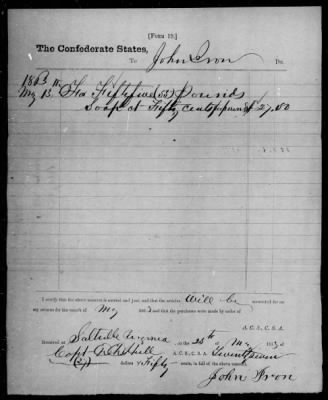 [Form 19.]
The Confederate States,
To John Iron Dr.
1863
May 13th For Fiftyfive (55) Pounds
Soap at Fifty cents per pound $ 27.50
I certify that the above account is correct and just; and that the articles will be accounted for on
my return for the month of May and that the purchases were made by order of
A. C. S., C. S. A.
Received at Saltville Virginia on the 25th of May 1863 of
Capt A. C. S., C. S. A. Twenty seven
dollars & Fifty cents, in full of the above account.
John Iron